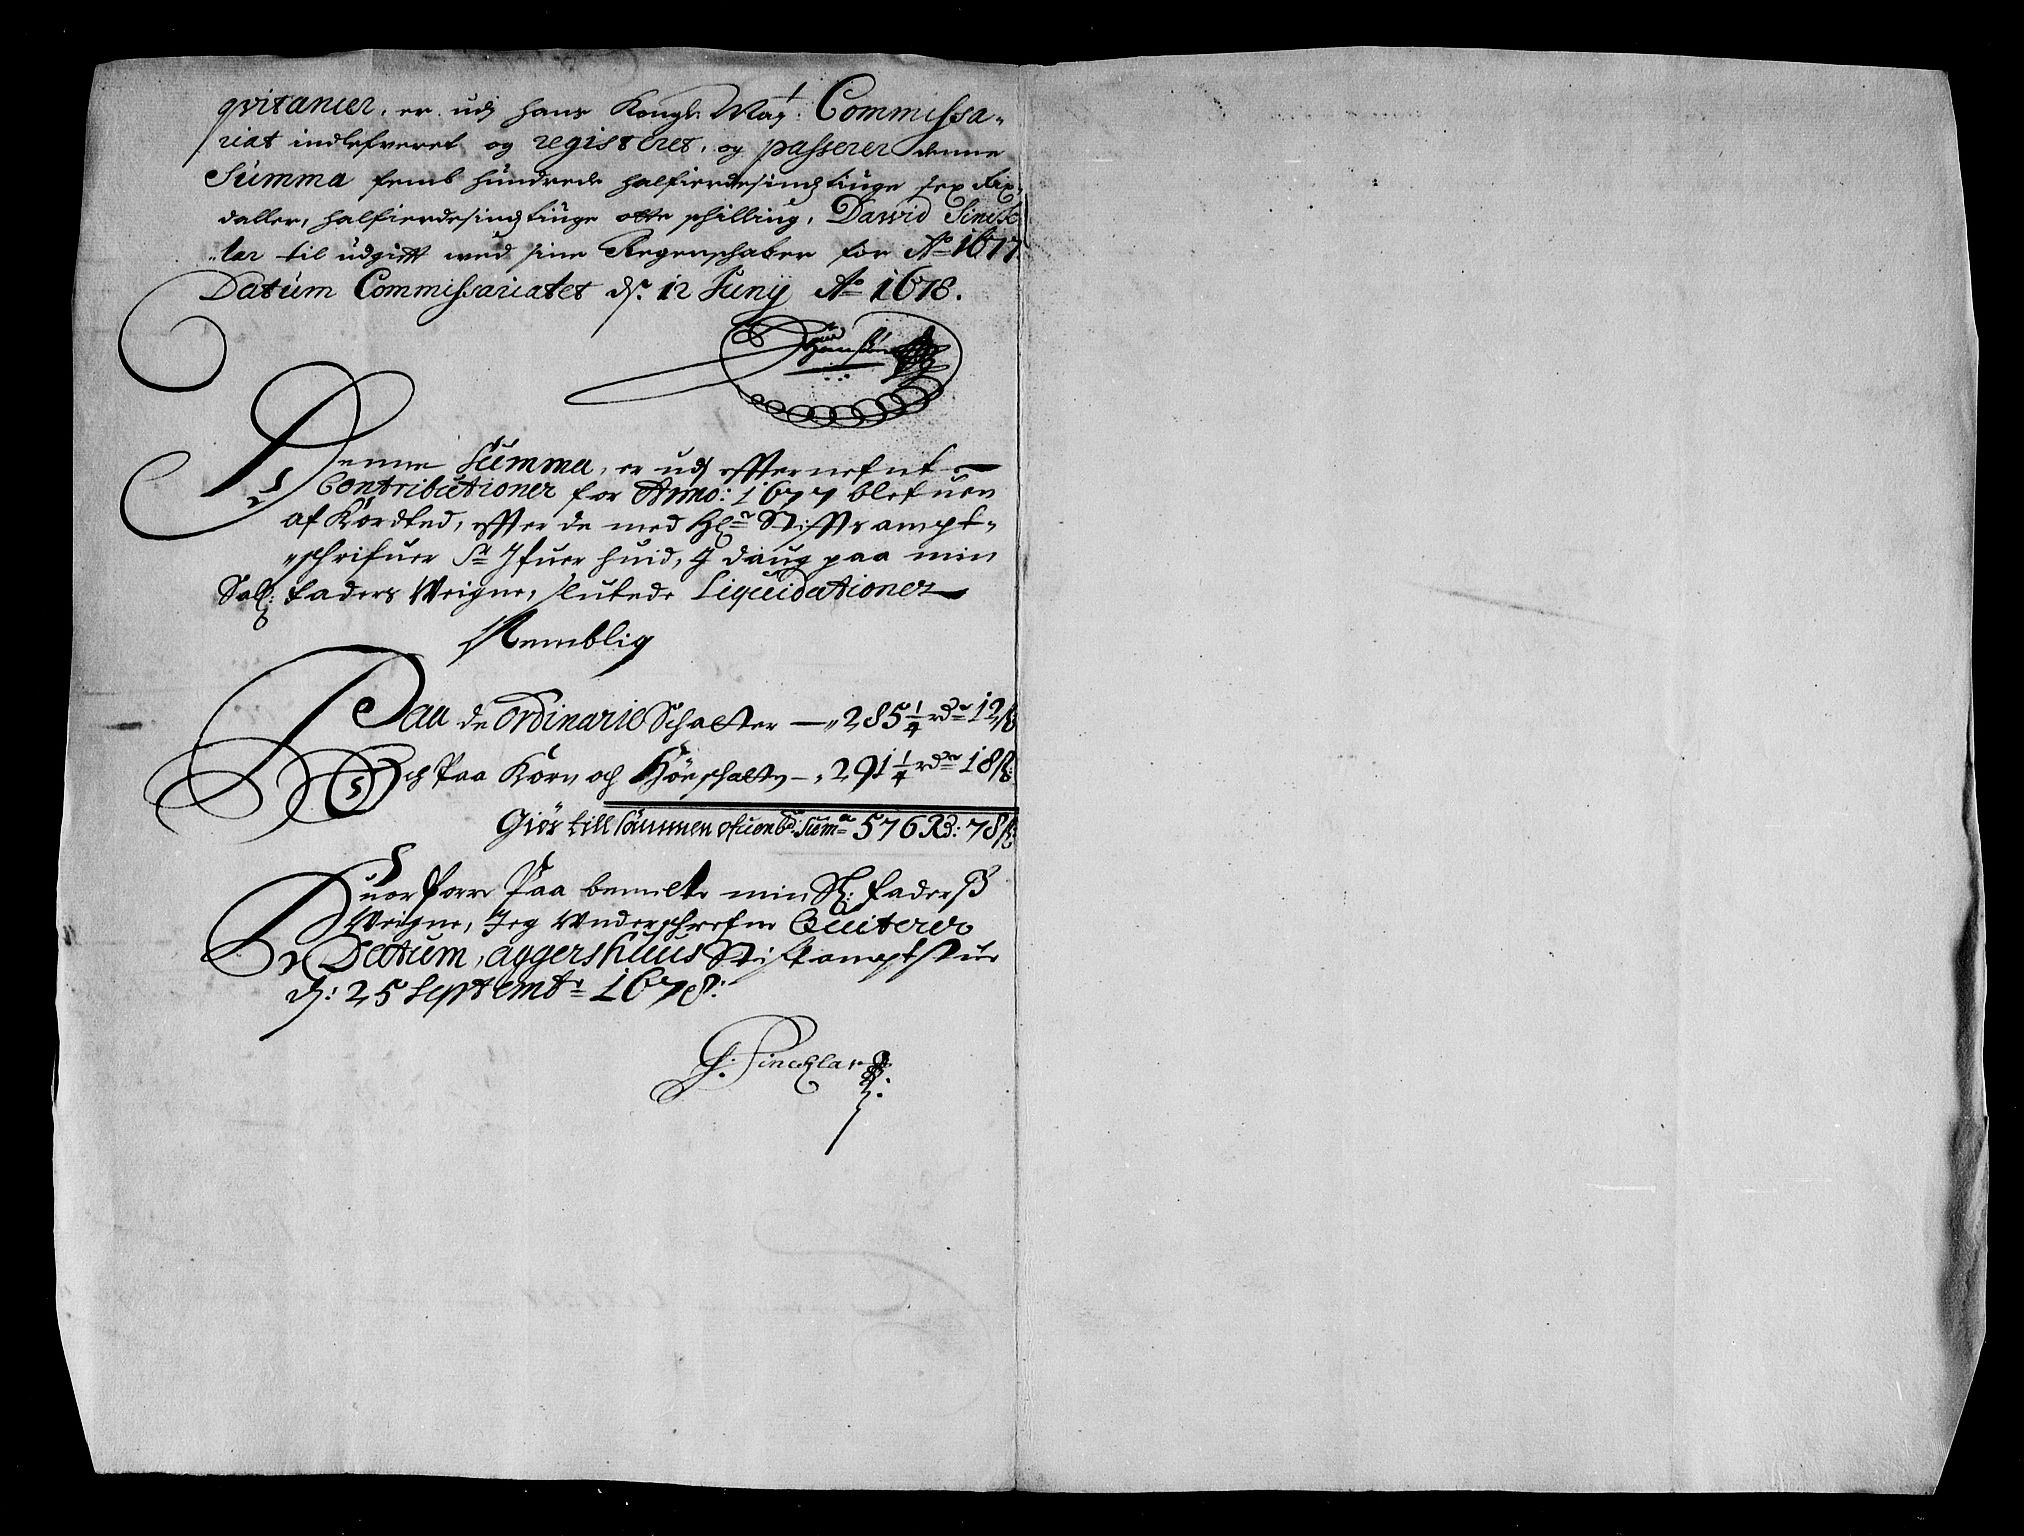 qvitancer, er udj hans Kongl: May: Commissa-
riat indlefveret og registeret, og passerer denne
Summa femb hundrede halfierdesindstiuge sex Rix-
daller, halfierdesindstiuge otte schilling, Dawid Sinck-
ler til udgifft wed sine Regenschaber for Ao 1677
Datum Commissariatet ds. 12 Junij Ao 1678.
Hansen
Denne Summa, er udj effternefnt
Contributioner for Anno: 1677 blefuen
afKordted, effter de med Hr Stiffts ampt-
schrifuer Sr Ifuer huid, J daug paa min
Sal: faders Weigne, slutede Liquidationer
Nemblig
Paa de Ordinarie Schatter — 285 1/4 rdr 12 ß
Och Paa Korn och Höe schatten — 291 1/4 rdr 18 ß:
Giör till sammen ofuenbd: Suma 576 Rd: 78 ß:
Huor forre Paa bemelte min Sl: faderß
Weigne, Jeg Underschrefne Quiterer
Datum, aggershuus Stiftamptstue
ds: 25 Septembr: 1678:
G: Sincklar